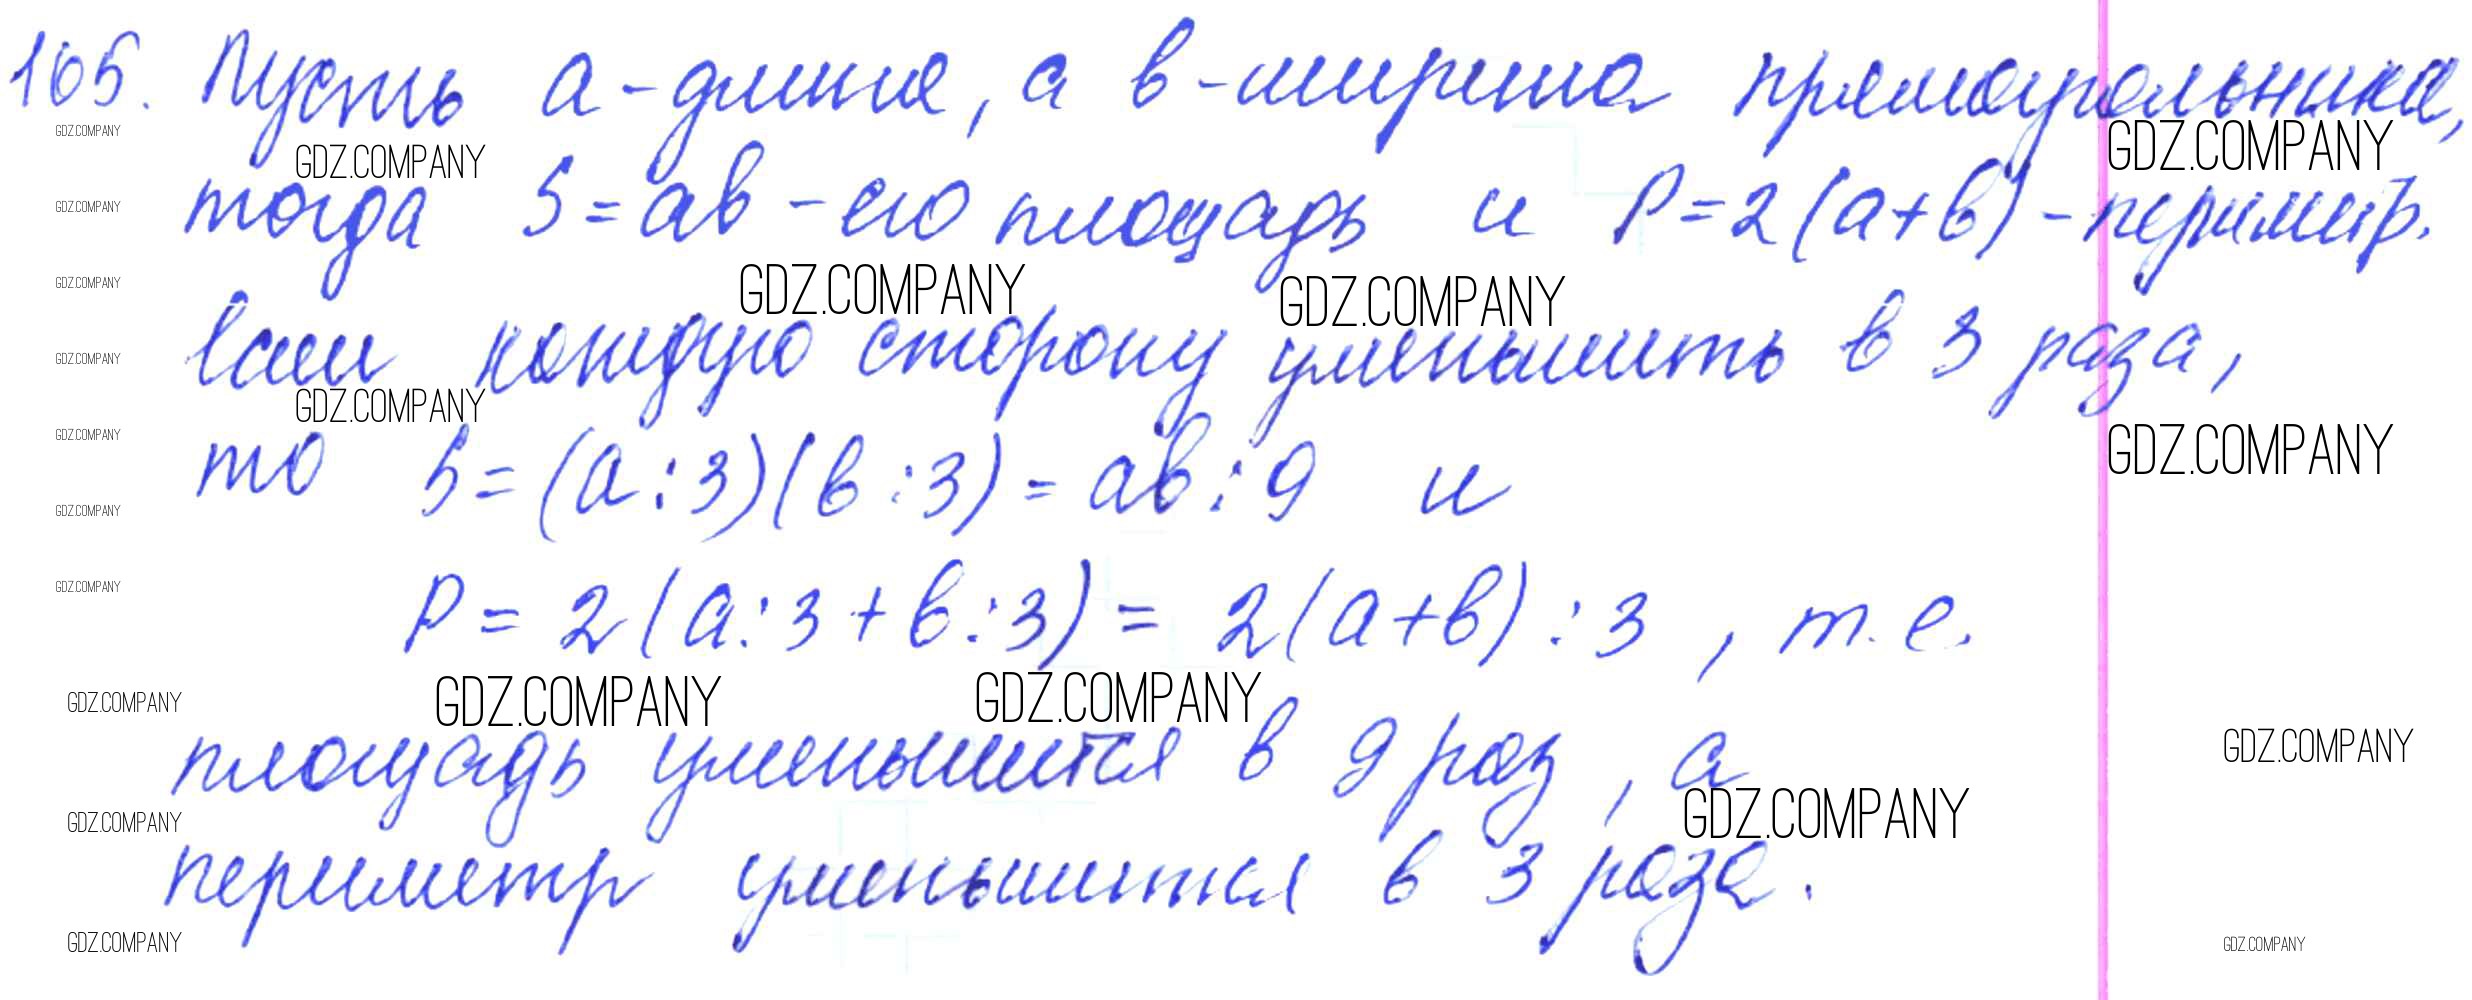 165. Пусть a - длина, а b - ширина прямоугольника,
GDZ.COMPANY GDZ.COMPANY GDZ.COMPANY
тогда S = ab - его площадь и P = 2(a+b) - периметр.
GDZ.COMPANY
GDZ.COMPANY GDZ.COMPANY GDZ.COMPANY
Если каждую сторону уменьшить в 3 раза,
GDZ.COMPANY GDZ.COMPANY
GDZ.COMPANY GDZ.COMPANY
то S = (a : 3)(b : 3) = ab : 9 и
GDZ.COMPANY
P = 2(a : 3 + b : 3) = 2(a+b) : 3, т. е.
GDZ.COMPANY
GDZ.COMPANY GDZ.COMPANY GDZ.COMPANY
площадь уменьшится в 9 раз, а
GDZ.COMPANY
GDZ.COMPANY GDZ.COMPANY
периметр уменьшится в 3 раза.
GDZ.COMPANY GDZ.COMPANY